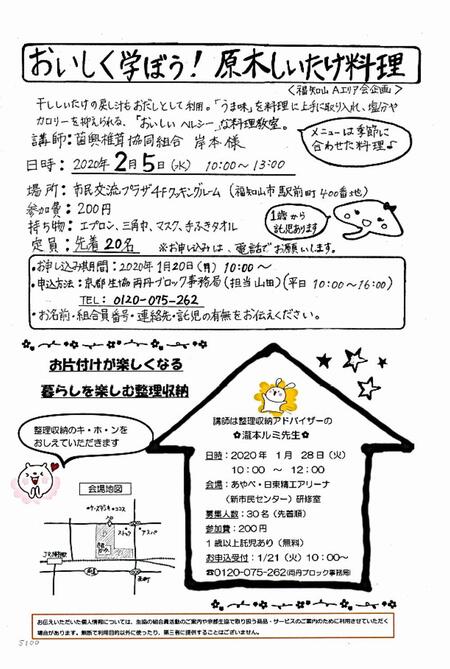 おいしく学ぼう! 原木しいたけ料理
<福知山Aエリア会企画>
干ししいたけの戻し汁もおだしとして利用。「うま味」を料理に上手に取り入れ、塩分や
カロリーを抑えられる、「おいしい ヘルシー」な料理教室。
講師:菌興椎茸協同組合 岸本様
メニューは季節に
合わせた料理♪
日時:2020年2月5日(水) 10:00〜13:00
場所:市民交流プラザ4Fクッキングルーム (福知山市駅前町400番地)
参加費:200円
持ち物:エプロン、三角巾、マスク、手ふきタオル
1歳から
託児あります
定員:先着20名 ※お申し込みは、電話でお願いします。
・お申し込み期間:2020年1月20日(月) 10:00〜
・申込方法:京都生協両丹ブロック事務局(担当山田)(平日10:00〜16:00)
TEL:0120-075-262
・お名前・組合員番号・連絡先・託児の有無をお伝えください。
お片付けが楽しくなる
暮らしを楽しむ整理収納
整理収納のキ・ホ・ンを
おしえていただきます
会場地図
講師は整理収納アドバイザーの
✿瀧本ルミ先生✿
日時:2020年 1月 28日(火)
10:00 〜 12:00
会場:あやべ・日東精工アリーナ
(新市民センター)研修室
募集人数:30名(先着順)
参加費:200円
1歳以上託児あり(無料)
お申込受付:1/21(火)10:00〜
☎0120-075-262(両丹ブロック事務局)
お伝えいただいた個人情報については、生協の組合員活動のご案内や京都生協で取り扱う商品・サービスのご案内のために利用させていただく
場合があります。無断で利用目的以外に使ったり、第三者に提供することはございません。
5100